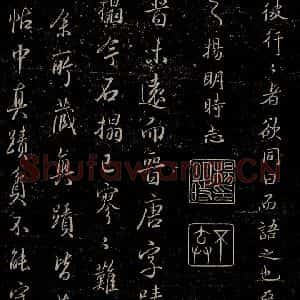 彼行〻者欲同日而語之也
楊明時志
未遠而晉唐字蹟
搨今石搨已寥〻難
余所藏真蹟皆
帖中真蹟不能
Shufawang.CN